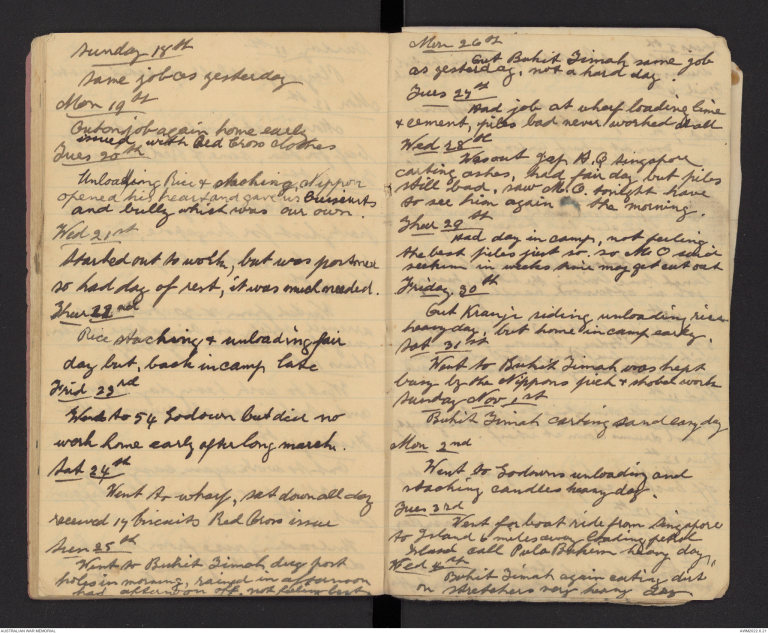 Sunday 18th
Same job as yesterday
Mon 19th
Out on job again home early
issued with Red Cross clothes
Tues 20th
Unloading Rice & stacking, Nippon
opened his heart and gave us Biscuits
and bully which was our own.
Wed 21st
Started out to work, but was postponed
so had day of rest, it was much needed.
Thur 22nd
Rice stacking & unloading fair
day but, back in camp late
Frid 23rd
Went to 54 Godown but did no
work home early after long march.
Sat 24th
Went to wharf, sat down all day
received 14 biscuits Red Cross issue
Sun 25th
Went to Bukit Timah dug post
holes in morning, rained in afternoon
had afternoon off, not feeling best
Mon 26th
Out Bukit Timah same job
as yesterday, not a hard day.
Tues 27th
Had job at wharf loading lime
& cement, piles bad never worked at all
Wed 28th
Was out Jap H.Q Singapore
carting ashes, had fair day but piles
still bad, saw M.O. tonight have
to see him again the morning.
Thur 29th
Had day in camp, not feeling
the best piles just so. so M O said
see him in weeks time may get cut out
Friday 30th
Out Kranji siding unloading rice
heavy day, but home in camp early.
Sat 31st
Went to Bukit Timah was kept
busy by the Nippons pick & shovel work
Sunday Nov 1st
Bukit Timah carting sand easy day
Mon 2nd
Went to Godowns unloading and
stacking candles heavy day.
Tues 3rd
Went for boat ride from Singapore
to Island 6 miles away loading petrol
Island call Pula Bukum heavy day,
Wed 4th
Bukit Timah again carting dirt
on stretchers very heavy day
AUSTRALIAN WAR MEMORIAL
AWM2022.6.21